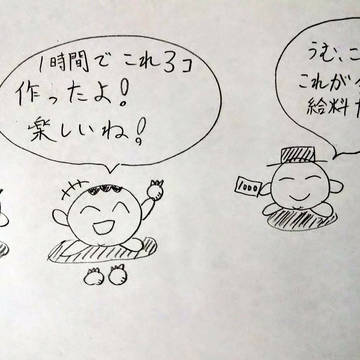 1時間でこれ3コ
作ったよ!
楽しいね!
うむ、こ
これが
給料だ
1000